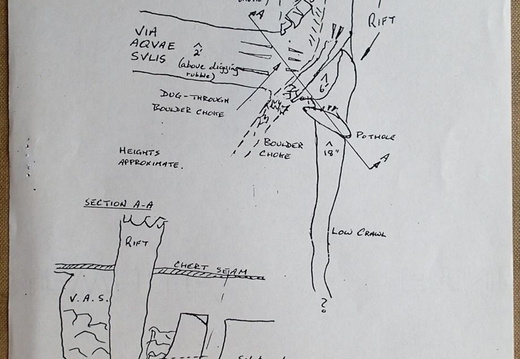 A
RIFT
VIA
AQVAE
SVLIS
2'
(above digging
rubble)
DUG-THROUGH
BOULDER CHOKE
6'
POTHOLE
HEIGHTS
APPROXIMATE.
BOULDER
CHOKE
18"
A
SECTION A-A
LOW CRAWL
RIFT
CHERT SEAM
V.A.S.
?